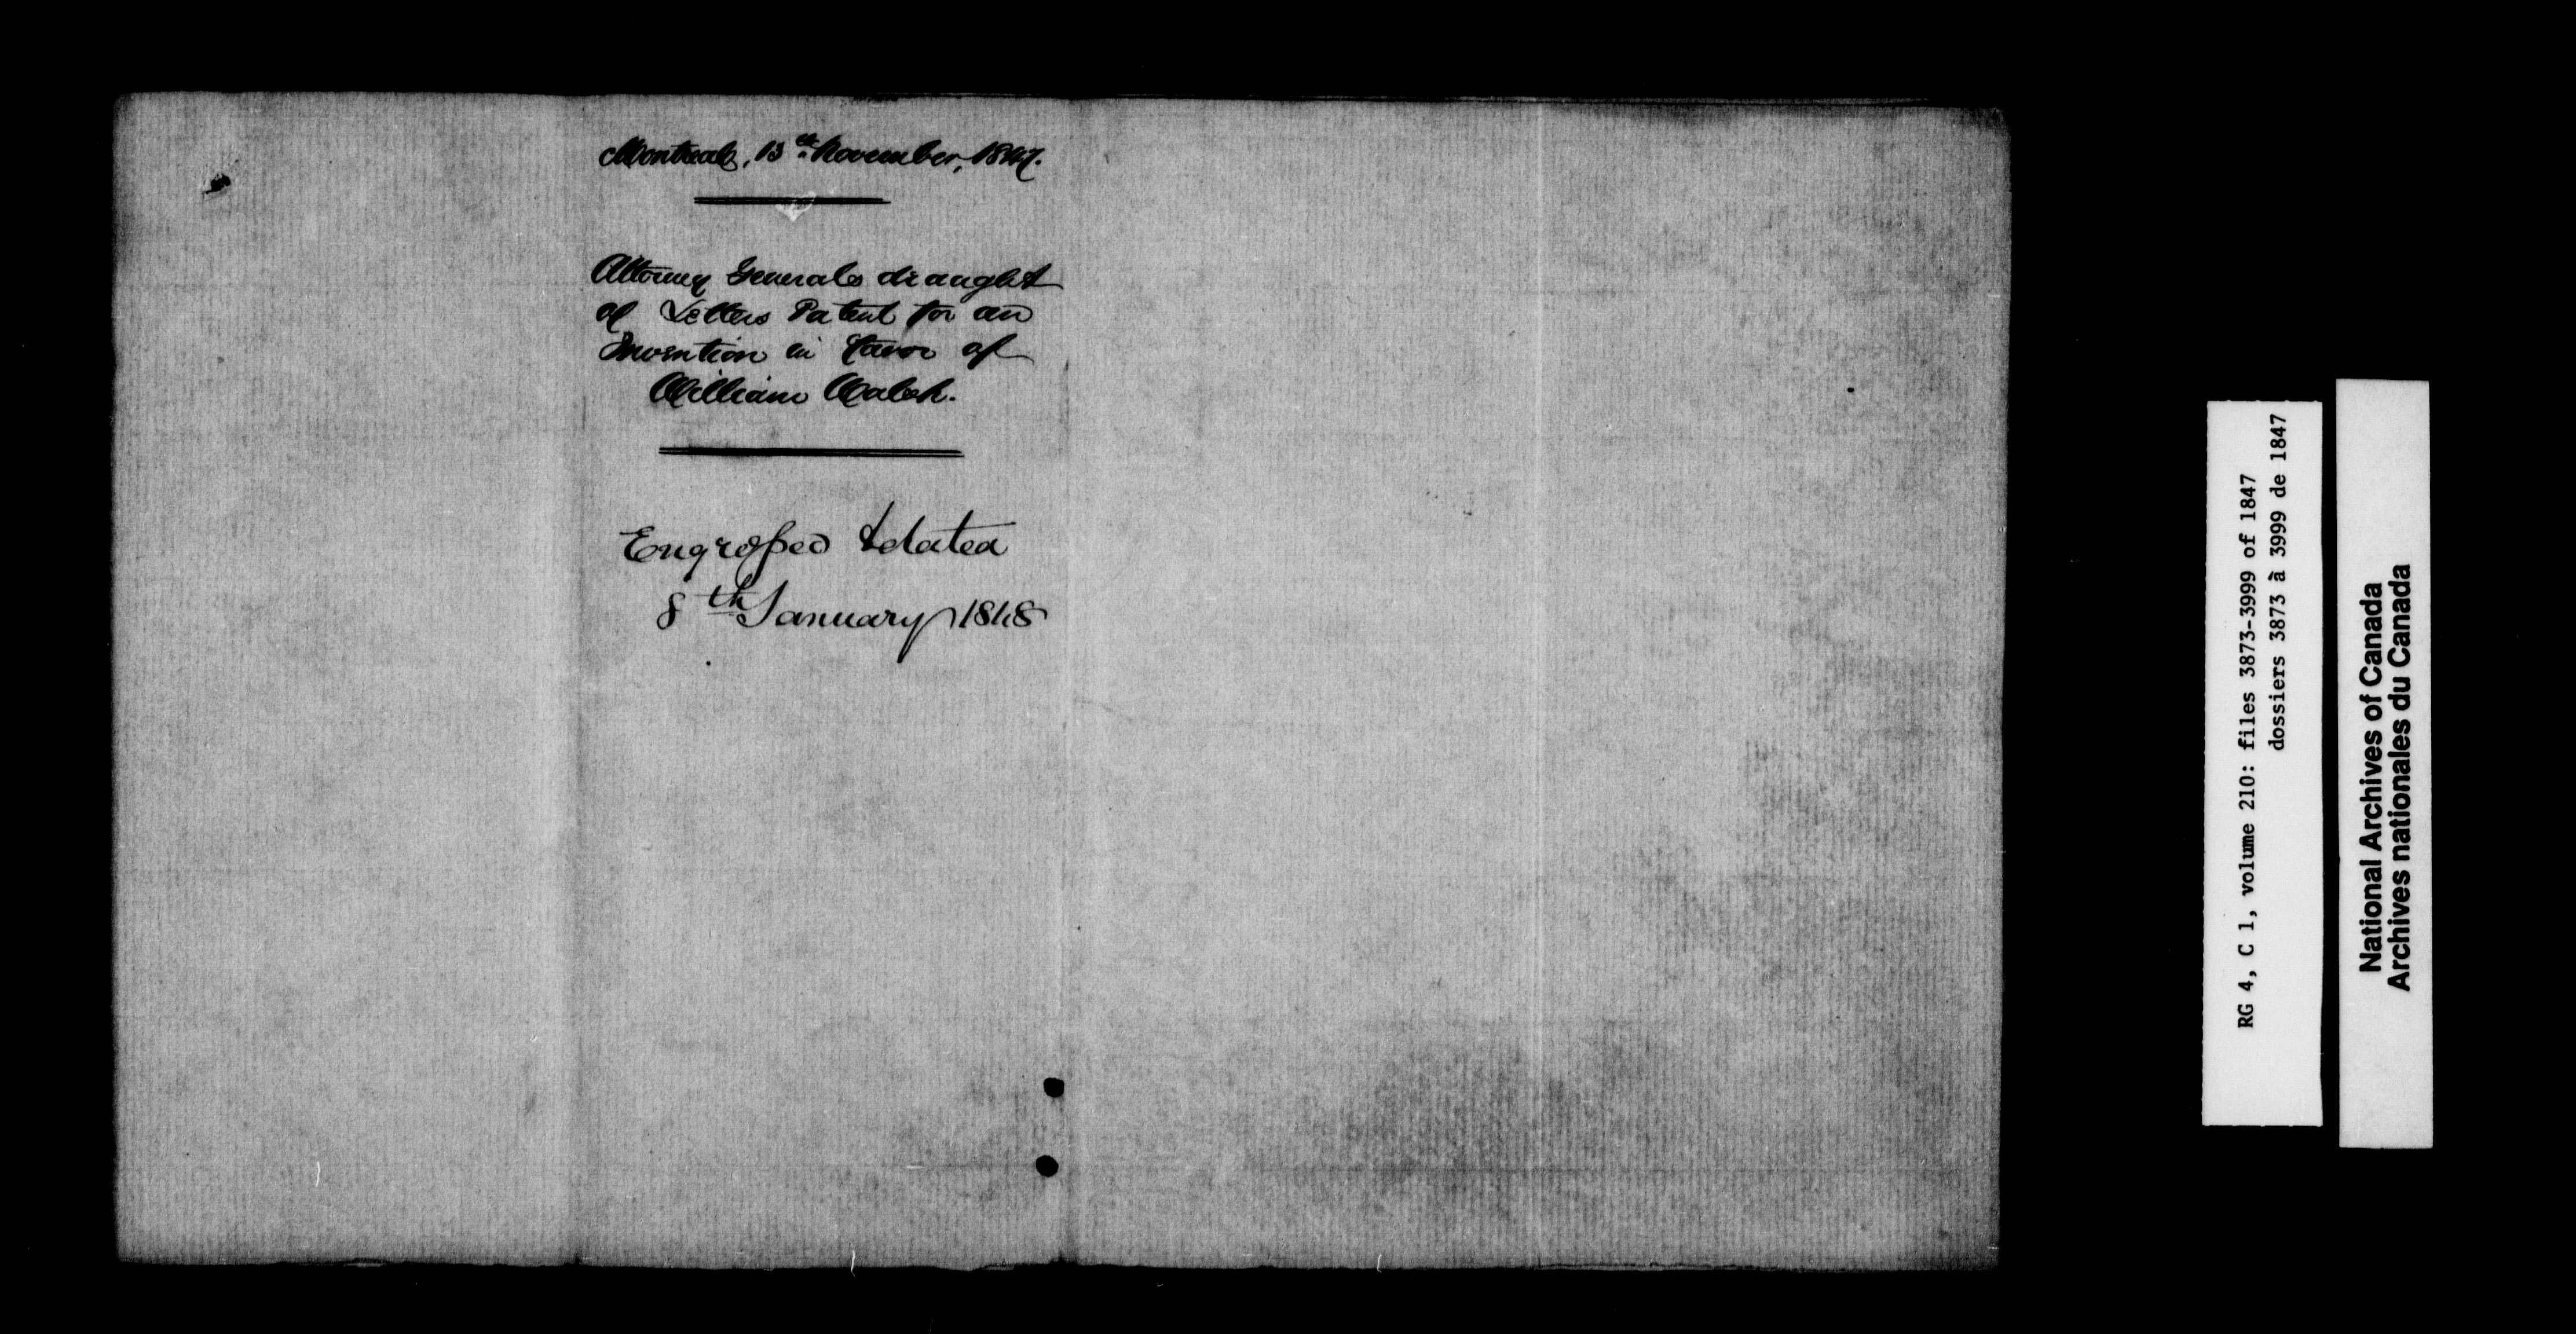 Montreal, 13th November, 1847.
Attorney Generals draught
of Letters Patent for an
Invention in favor of
William Walsh.
Engrossed & dated
8th January 1848
RG 4, C 1, volume 210: files 3873-3999 of 1847
dossiers 3873 à 3999 de 1847
National Archives of Canada
Archives nationales du Canada